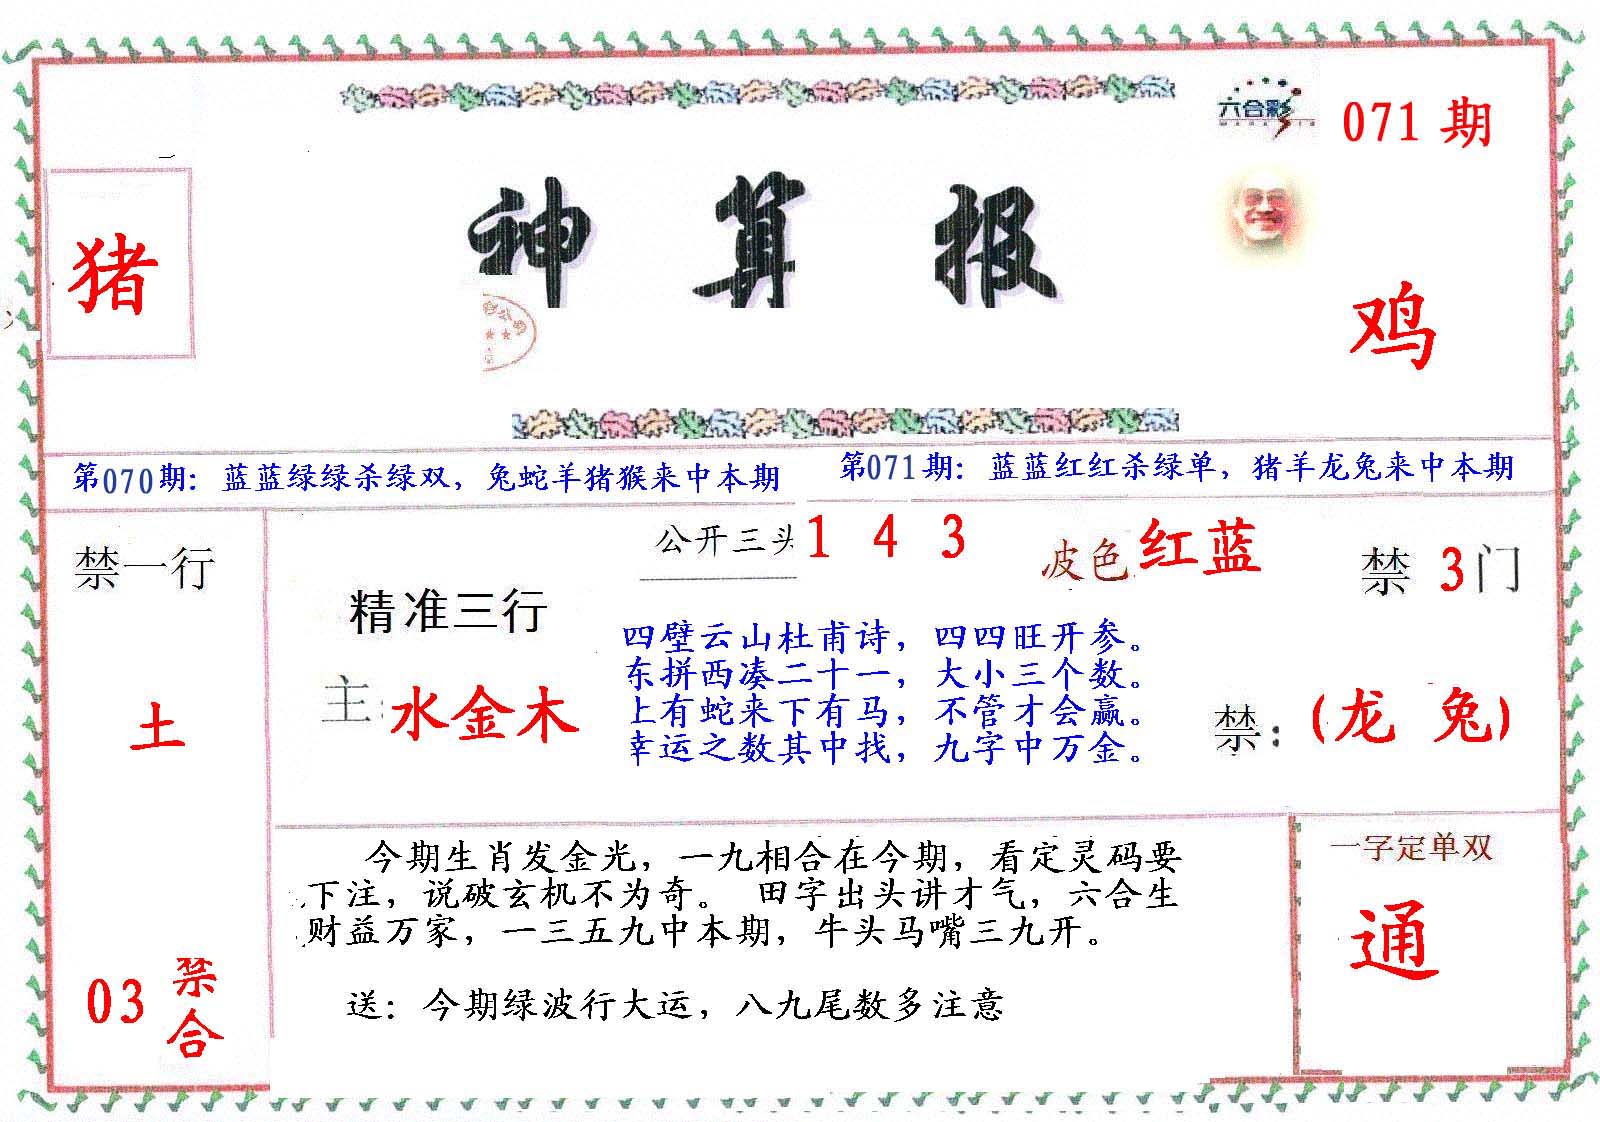 六合彩
071 期
神算报
猪
鸡
第070期：蓝蓝绿绿杀绿双，兔蛇羊猪猴来中本期
第071期：蓝蓝红红杀绿单，猪羊龙兔来中本期
禁一行
土
03 禁合
公开三头 1 4 3
波色 红蓝
禁 3 门
精准三行
主：水金木
四壁云山杜甫诗，四四旺开参。
东拼西凑二十一，大小三个数。
上有蛇来下有马，不管才会赢。
幸运之数其中找，九字中万金。
禁：(龙 兔)
今期生肖发金光，一九相合在今期，看定灵码要
下注，说破玄机不为奇。 田字出头讲才气，六合生
财益万家，一三五九中本期，牛头马嘴三九开。
送：今期绿波行大运，八九尾数多注意
一字定单双
通